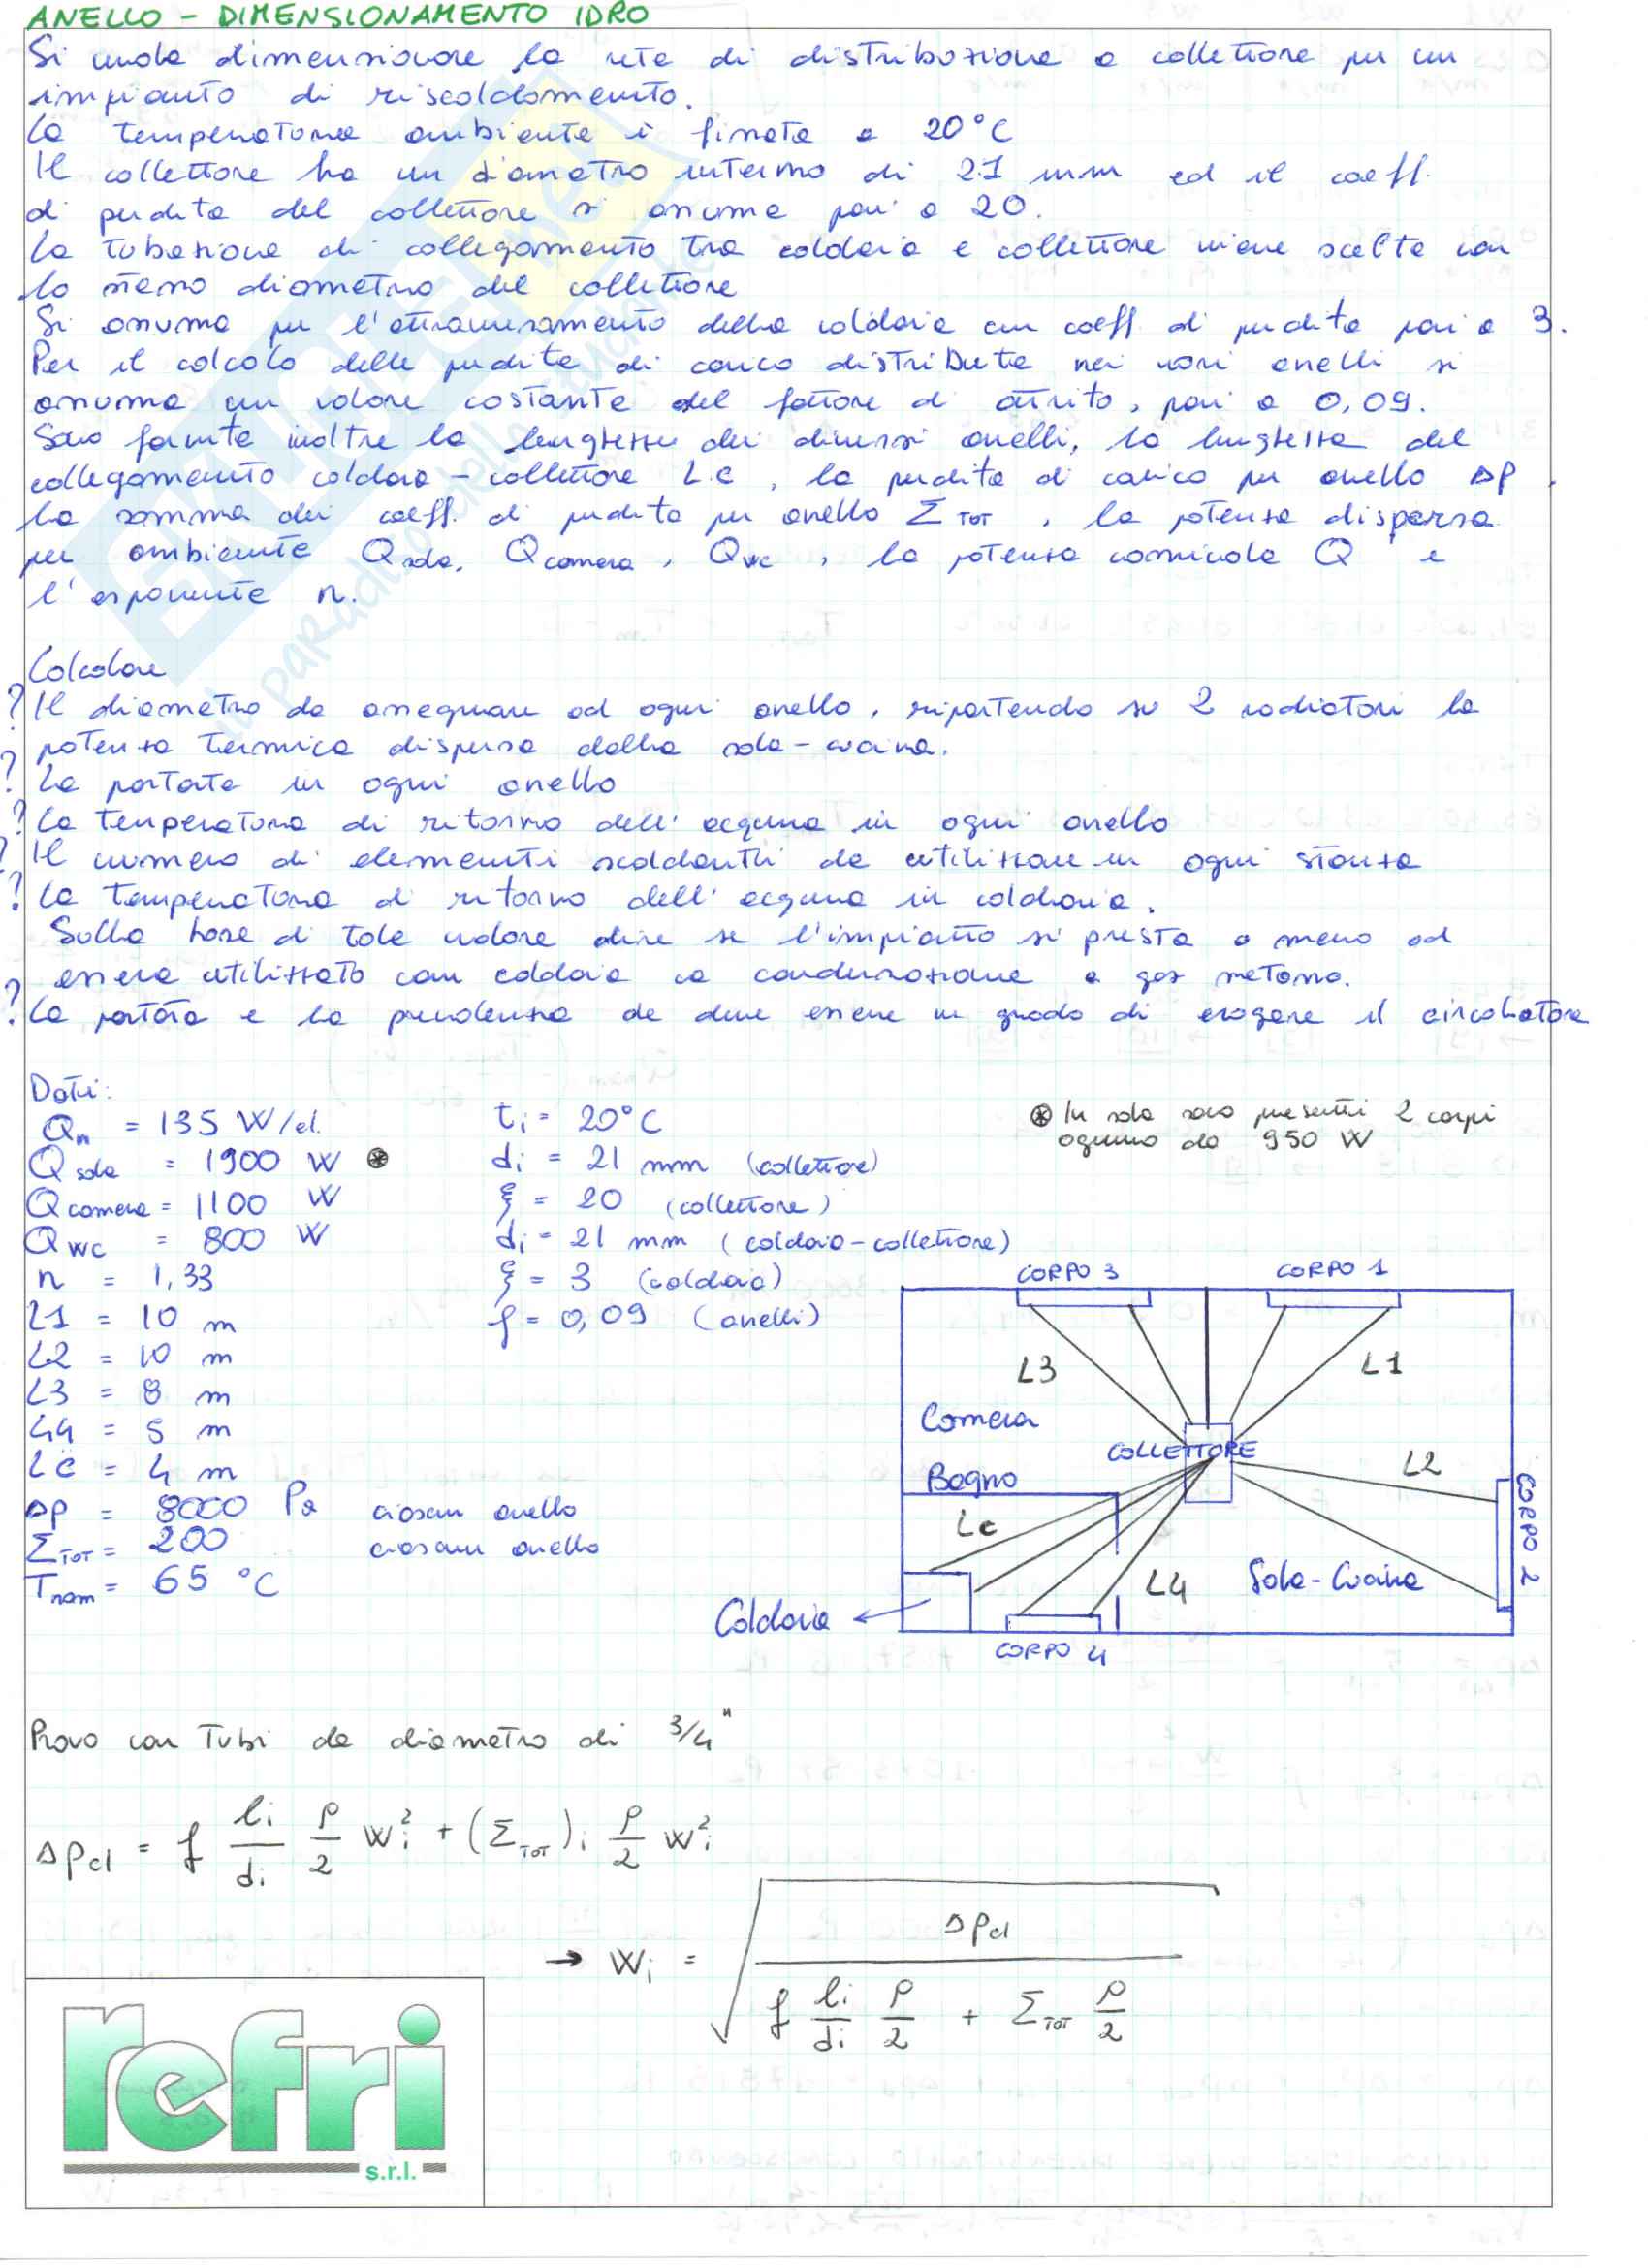 ANELLO - DIMENSIONAMENTO IDRO
Si vuole dimensionare la rete di distribuzione a collettore per un
impianto di riscaldamento.
La temperatura ambiente è fissata a 20°C
Il collettore ha un diametro interno di 21 mm ed il coeff.
di perdita del collettore si assume pari a 20.
La tubazione di collegamento tra caldaia e collettore viene scelta con
lo stesso diametro del collettore
Si assuma per l'attraversamento della caldaia un coeff. di perdita pari a 3.
Per il calcolo delle perdite di carico distribuite nei vari anelli si
assuma un valore costante del fattore di attrito, pari a 0,09.
Sono fornite inoltre le lunghezze dei diversi anelli, la lunghezza del
collegamento caldaia - collettore L.C, la perdita di carico per anello ΔP,
la somma dei coeff. di perdita per anello ΣTOT, la potenza dispersa
per ambiente Qsala, Qcamera, Qwc, la potenza nominale Q e
l'esponente n.
Calcolare
? Il diametro da assegnare ad ogni anello, ripartendo su 2 radiatori la
potenza termica dispersa dalla sala-cucina.
? La portata in ogni anello
? La temperatura di ritorno dell'acqua in ogni anello
? Il numero di elementi scaldanti da utilizzare in ogni stanza
? La temperatura di ritorno dell'acqua in caldaia.
Sulla base di tale valore dire se l'impianto si presta o meno ad
essere utilizzato con caldaia a condensazione a gas metano.
? La portata e la prevalenza che deve essere in grado di erogare il circolatore
Dati:
Qn = 135 W/el.
ti = 20°C
⊛ In sala sono presenti 2 corpi
ognuno da 950 W
Qsala = 1900 W ⊛
di = 21 mm (collettore)
Qcamera = 1100 W
ξ = 20 (collettore)
Qwc = 800 W
di = 21 mm (caldaia-collettore)
n = 1,33
ξ = 3 (caldaia)
L1 = 10 m
f = 0,09 (anelli)
L2 = 10 m
L3 = 8 m
L4 = 5 m
LC = 4 m
ΔP = 8000 Pa ciascun anello
ΣTOT = 200 ciascun anello
Tnom = 65 °C
CORPO 3
CORPO 1
L3
L1
Camera
COLLETTORE
L2
Bagno
CORPO 2
Lc
L4
Sala-Cucina
Caldaia
CORPO 4
Provo con tubi da diametro di 3/4"
Δpcl = f li/di ρ/2 wi² + (ΣTOT)i ρ/2 wi²
→ wi = √(Δpcl / (f li/di ρ/2 + ΣTOT ρ/2))
refri
s.r.l.